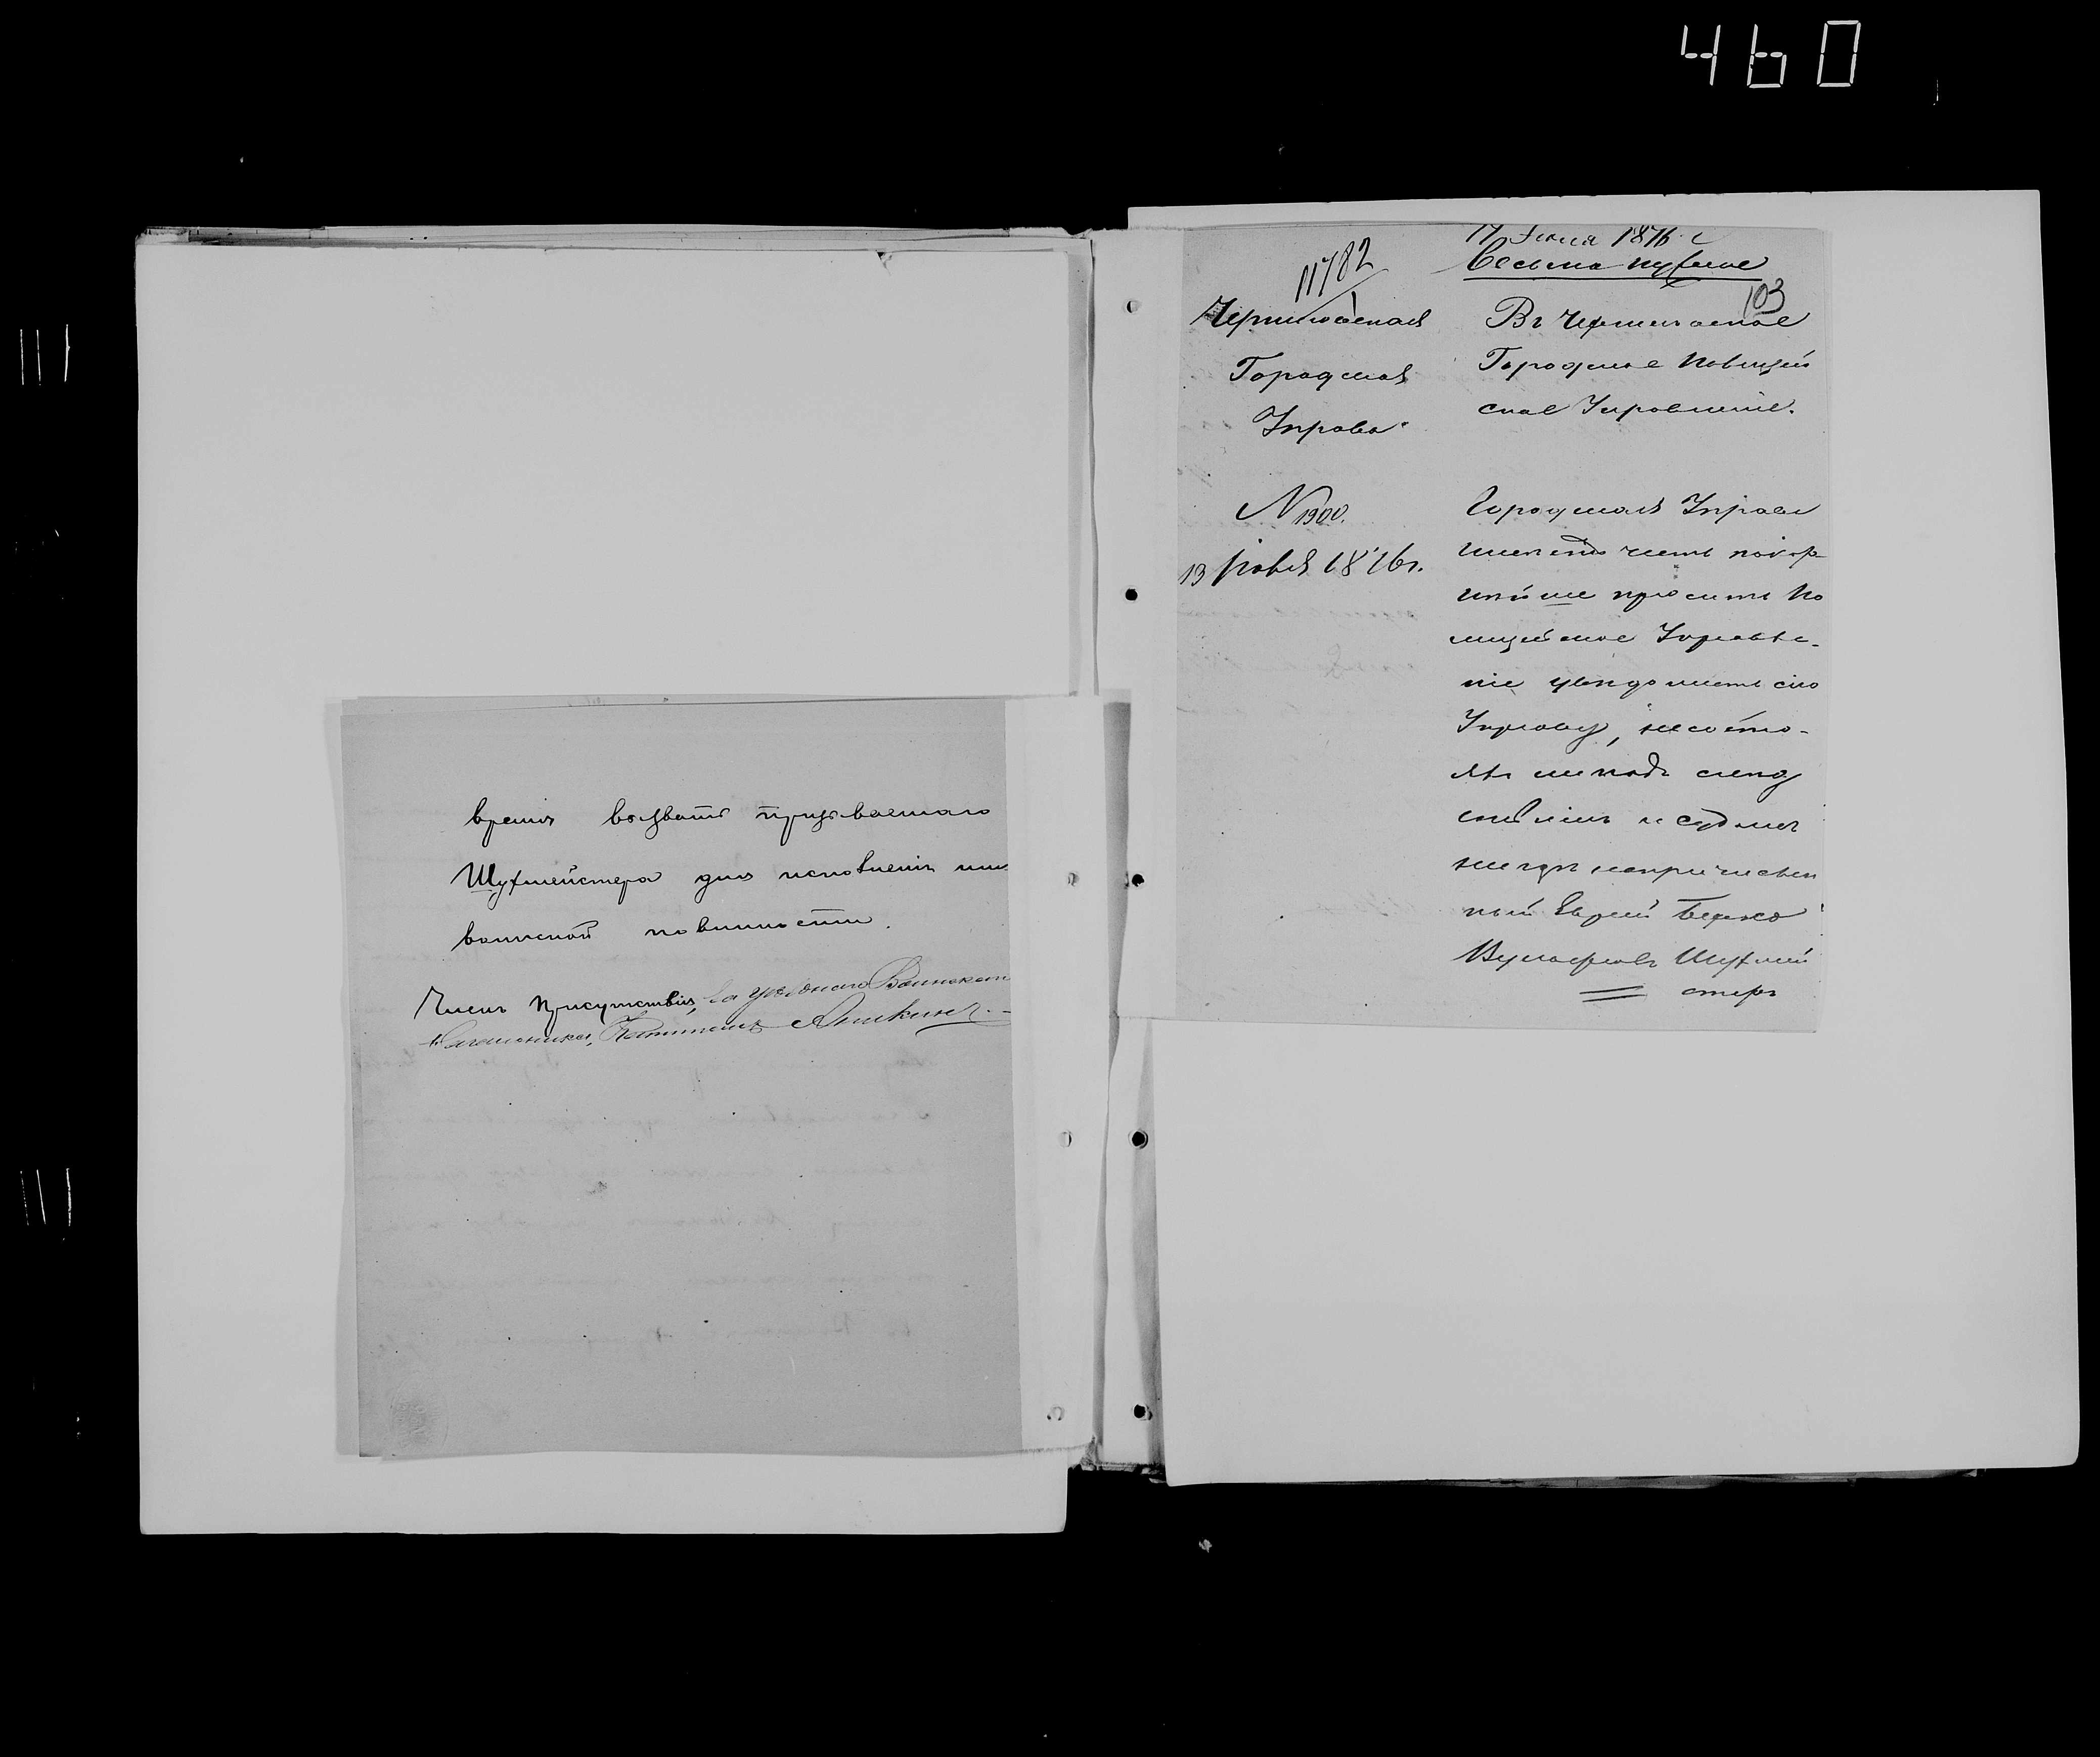 460
время вызвать призываемаго
Шухмейстера для исполненія им
воинской повинности.
Членъ Присутствія, за Уѣзднаго Воинскаго
Начальника, Капитанъ Аникинъ.
17 Іюня 1876 г
Весьма нужное
11782
103
Черниговская
Городская
Управа.
N 1900.
13 Іюня 1876 г.
Въ Черниговское
Городское Полицей
ское Управленіе.
Городская Управа
имѣетъ честь покор
нѣйше проситъ По
лицейское Управле-
ніе увѣдомить сію
Управу, несосто-
лъ ли подъ слѣд
ствіемъ и судомъ
нигдѣ неприписан
ный Еврей Берко
Шухмей
стеръ